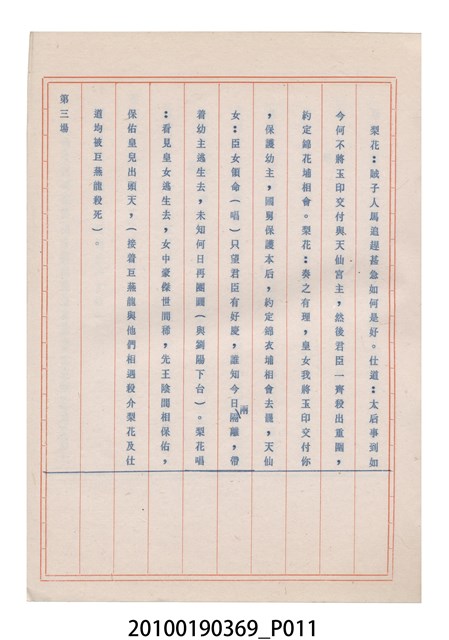 梨花：賊子人馬追趕甚急如何是好。仕道：太后事到如
今何不將玉印交付與天仙宮主，然後君臣一齊殺出重圍，
約定錦花埔相會。梨花：奏之有理，皇女我將玉印交付你
，保護幼主，國舅保護本后，約定錦衣埔相會去罷，天仙
女：臣女領命（唱）只望君臣有好慶，誰知今日兩隔離，帶
着幼主逃生去，未知何日再團圓（與劉陽下台）。梨花唱
：看見皇女逃生去，女中豪傑世間稀，先王陰間相保佑，
保佑皇兒出頭天，（接着巨燕龍與他們相遇殺介梨花及仕
道均被巨燕龍殺死）。
第三場
20100190369_P011